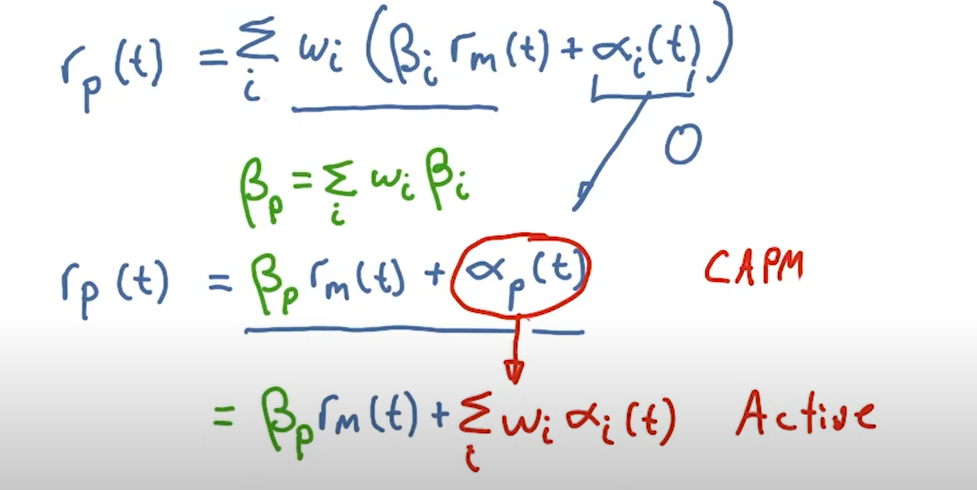 rₚ(t) = Σᵢ wᵢ (βᵢ rₘ(t) + αᵢ(t))
0
βₚ = Σᵢ wᵢ βᵢ
rₚ(t) = βₚ rₘ(t) + αₚ(t) CAPM
= βₚ rₘ(t) + Σᵢ wᵢ αᵢ(t) Active